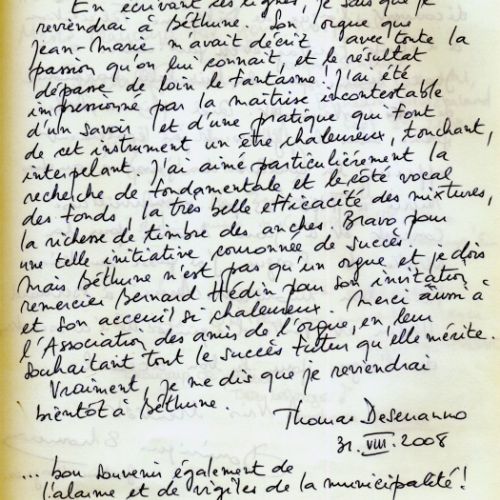 En écrivant ces lignes, je sais que je
reviendrai à Béthune. Son orgue que
Jean-Marie m'avait décrit avec toute la
passion qu'on lui connait, et le résultat
dépasse de loin le fantasme ! J'ai été
impressionné par la maîtrise incontestable
d'un savoir et d'une pratique qui font
de cet instrument un être chaleureux, touchant,
interpelant. J'ai aimé particulièrement la
recherche de fondamentale et le côté vocal
des fonds, la très belle efficacité des mixtures,
la richesse de timbre des anches. Bravo pour
une telle initiative couronnée de succès.
Mais Béthune n'est pas qu'un orgue et je dois
remercier Bernard Hédin pour son invitation
et son acceuil si chaleureux. Merci aussi à
l'Association des amis de l'orgue, en leur
souhaitant tout le succès futur qu'elle mérite.
Vraiment, je me dis que je reviendrai
bientôt à Béthune.
Thomas
31. VIII. 2008
... bon souvenir également de
l'alarme et de vigiles de la municipalité !